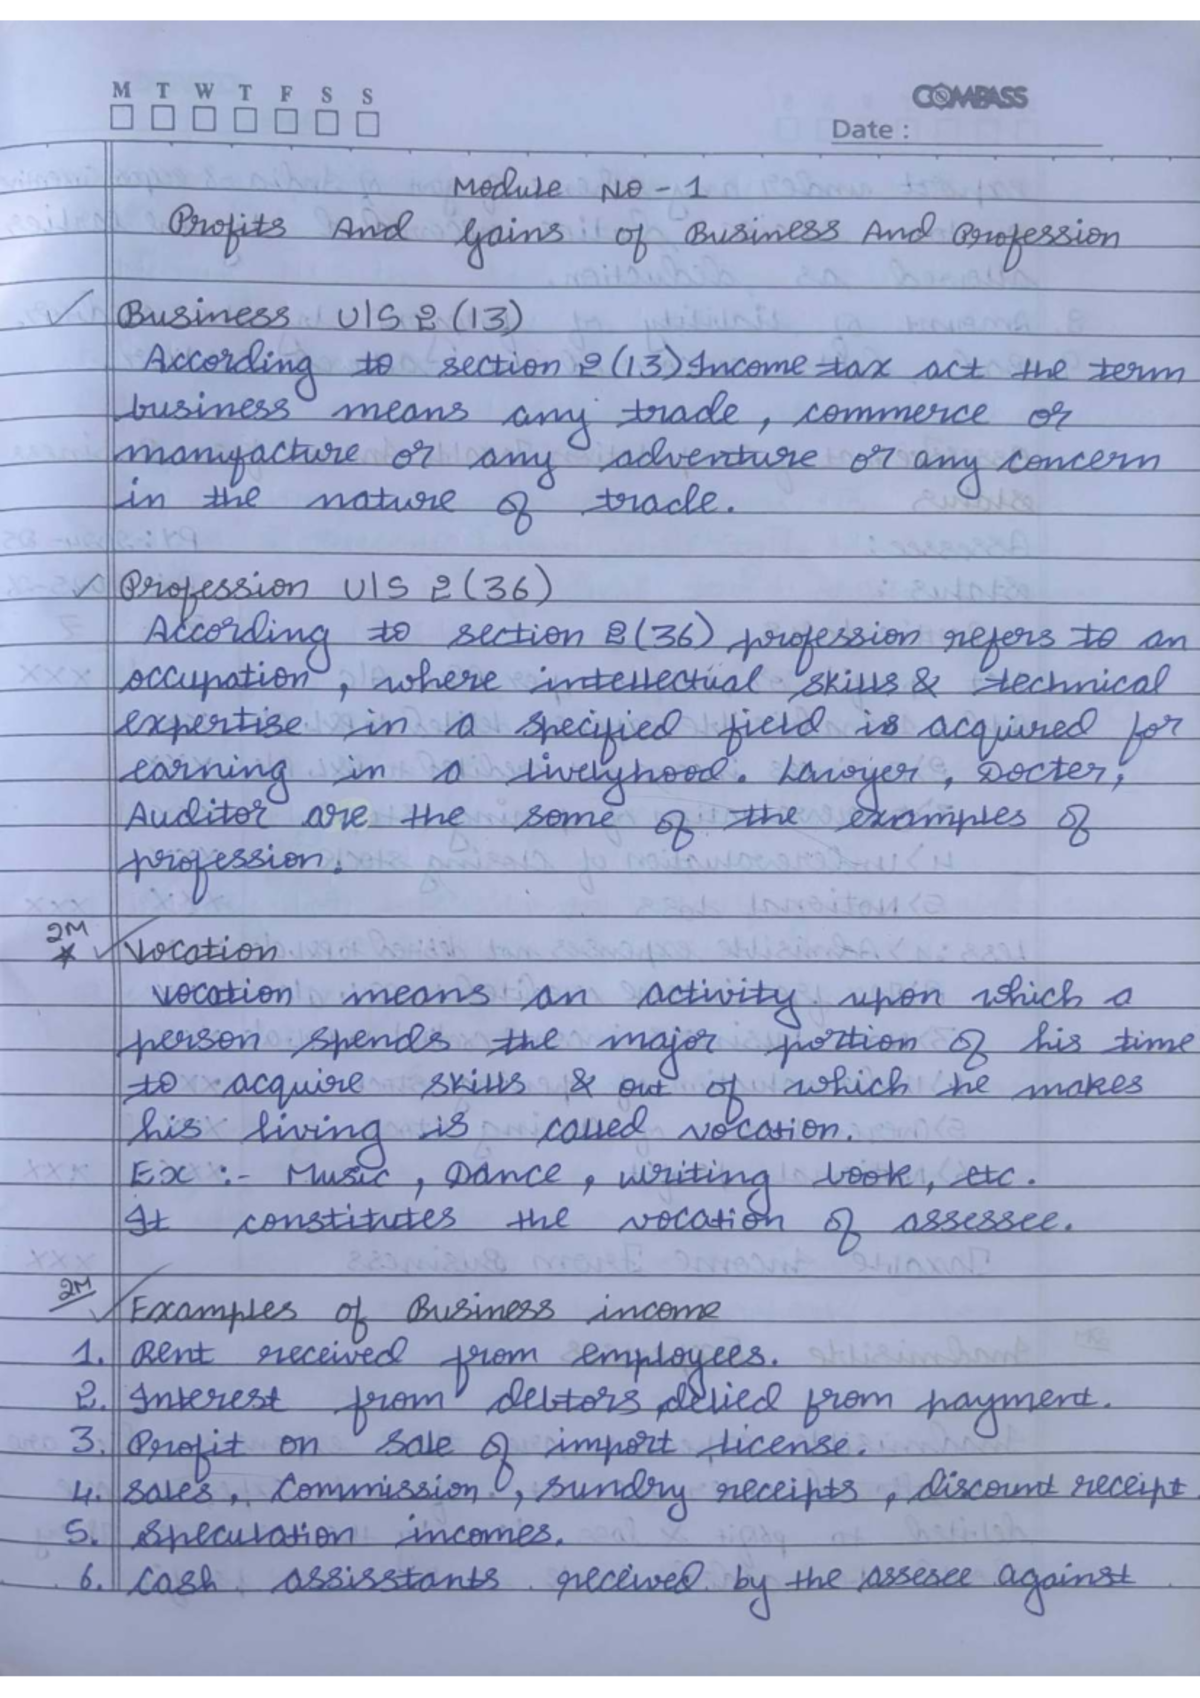 M T W T F S S
COMPASS
Date :
Module No - 1
Profits And Gains of Business And Profession
Business U/S 2 (13)
According to section 2 (13) Income tax act the term
business means any trade, commerce or
manufacture or any adventure or any concern
in the nature of trade.
Profession U/S 2 (36)
According to section 2 (36) profession refers to an
occupation, where intellectual skills & technical
expertise in a specified field is acquired for
earning in a livelyhood. Lawyer, Docter,
Auditor are the some of the examples of
profession.
2M
Vocation
Vocation means an activity upon which a
person spends the major portion of his time
to acquire skills & out of which he makes
his living is called vocation.
Ex :- Music, Dance, writing book, etc.
It constitutes the vocation of assessee.
2M
Examples of Business income
1. Rent received from employees.
2. Interest from debtors, delied from payment.
3. Profit on sale of import license.
4. Sales, Commission, sundry receipts, discount receipt
5. Speculation incomes.
6. Cash assisstants received by the assesee against